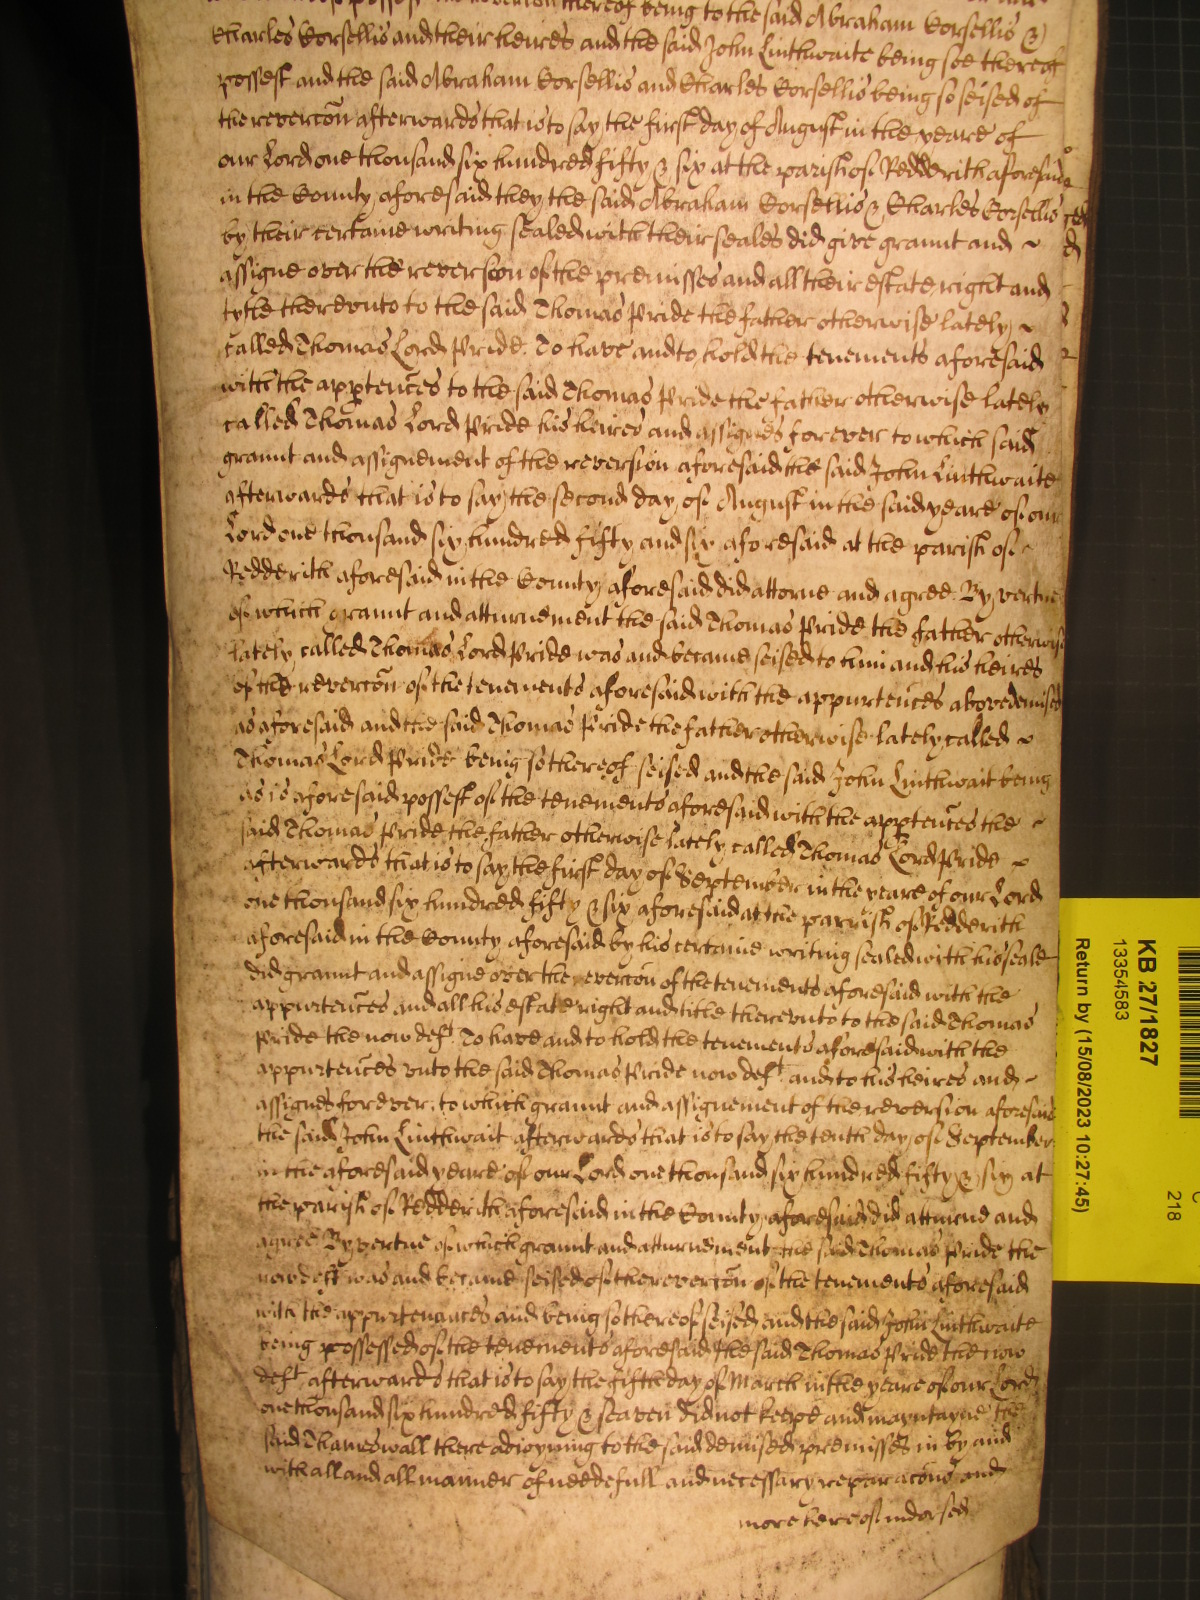 the reversion thereof being to the said Abraham Corsellis &
Charles Corsellis and their heires and the said John Linthwaite being soe thereof
possest and the said Abraham Corsellis and Charles Corsellis being so seised of
the revercõn afterwards that is to say the first day of August in the yeare of
our Lord one thousand six hundred fifty & six at the parish of Redderith aforesaid
in the County aforesaid they the said Abraham Corsellis & Charles Corsellis
by their certaine writing sealed with their seales did give graunt and ~
assigne over the reversion of the premisses and all their estate right and
tytle therevnto to the said Thomas Pride the father otherwise lately ~
called Thomas Lord Pride. To have and to hold the tenements aforesaid
with the apptences to the said Thomas Pride the father otherwise lately
called Thomas Lord Pride his heires and assignes forever to which said
graunt and assignement of the reversion aforesaid the said John Linthwaite
afterwards that is to say the second day of August in the said yeare of our
Lord one thousand six hundred fifty and six aforesaid at the parish of
Redderith aforesaid in the County aforesaid did attorne and agree By vertue
of which graunt and atturnement the said Thomas Pride the father otherwise
lately called Thomas Lord Pride was and became seised to him and his heires
of the revercõn of the tenements aforesaid with the appurtences abovedemised
as aforesaid and the said Thomas Pride the father otherwise lately called ~
Thomas Lord Pride being so thereof seised and the said John Linthwait being
as is aforesaid possest of the tenements aforesaid with the apptences the ~
said Thomas Pride the father otherwise lately called Thomas Lord Pride ~
afterwards that is to say the first day of September in the yeare of our Lord
one thousand six hundred fifty & six aforesaid at the parrish of Redderith
aforesaid in the County aforesaid by his certaine writing sealed with his seale
did graunt and assigne over the revercõn of the tenements aforesaid with the
appurtences and all his estate right and title therevnto to the said Thomas
Pride the now deft To have and to hold the tenements aforesaid with the
appurtences vnto the said Thomas Pride now deft and to his heires and ~
assignes forever, to which graunt and assignement of the reversion aforesaid
the said John Linthwait afterwards that is to say the tenth day of September
in the aforesaid yeare of our Lord one thousand six hundred fifty & six at
the parish of Redderith aforesaid in the County aforesaid did atturne and
agree By vertue of which graunt and atturnement the said Thomas Pride the
now deft was and became seised of the revercõn of the tenements aforesaid
with the appurtenances and being so thereof seised and the said John Linthwaite
being possessed of the tenements aforesaid the said Thomas Pride the now
deft afterwards that is to say the fifth day of March in the yeare of our Lord
one thousand six hundred fifty & seaven did not keepe and mayntayne the
said Thameswall there adioyning to the said demised premisses in by and
with all and all manner of needefull and necessary reparacõns and
more hereof indorsed
KB 27/1827
13354583
Return by (15/08/2023 10:27:45)
218